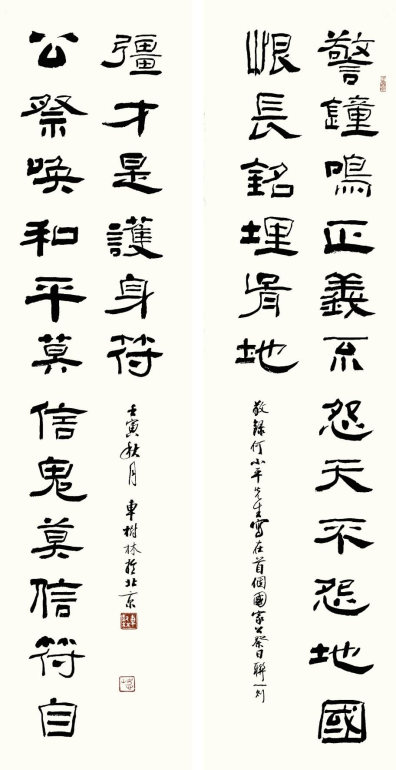 警鐘鳴正義不怨天不怨地國
恨長銘埋骨地
敬録何小平先生寫在首個國家公祭日聯一則
公祭喚和平莫信鬼莫信符自
彊才是護身符
壬寅秋月 車樹林於北京